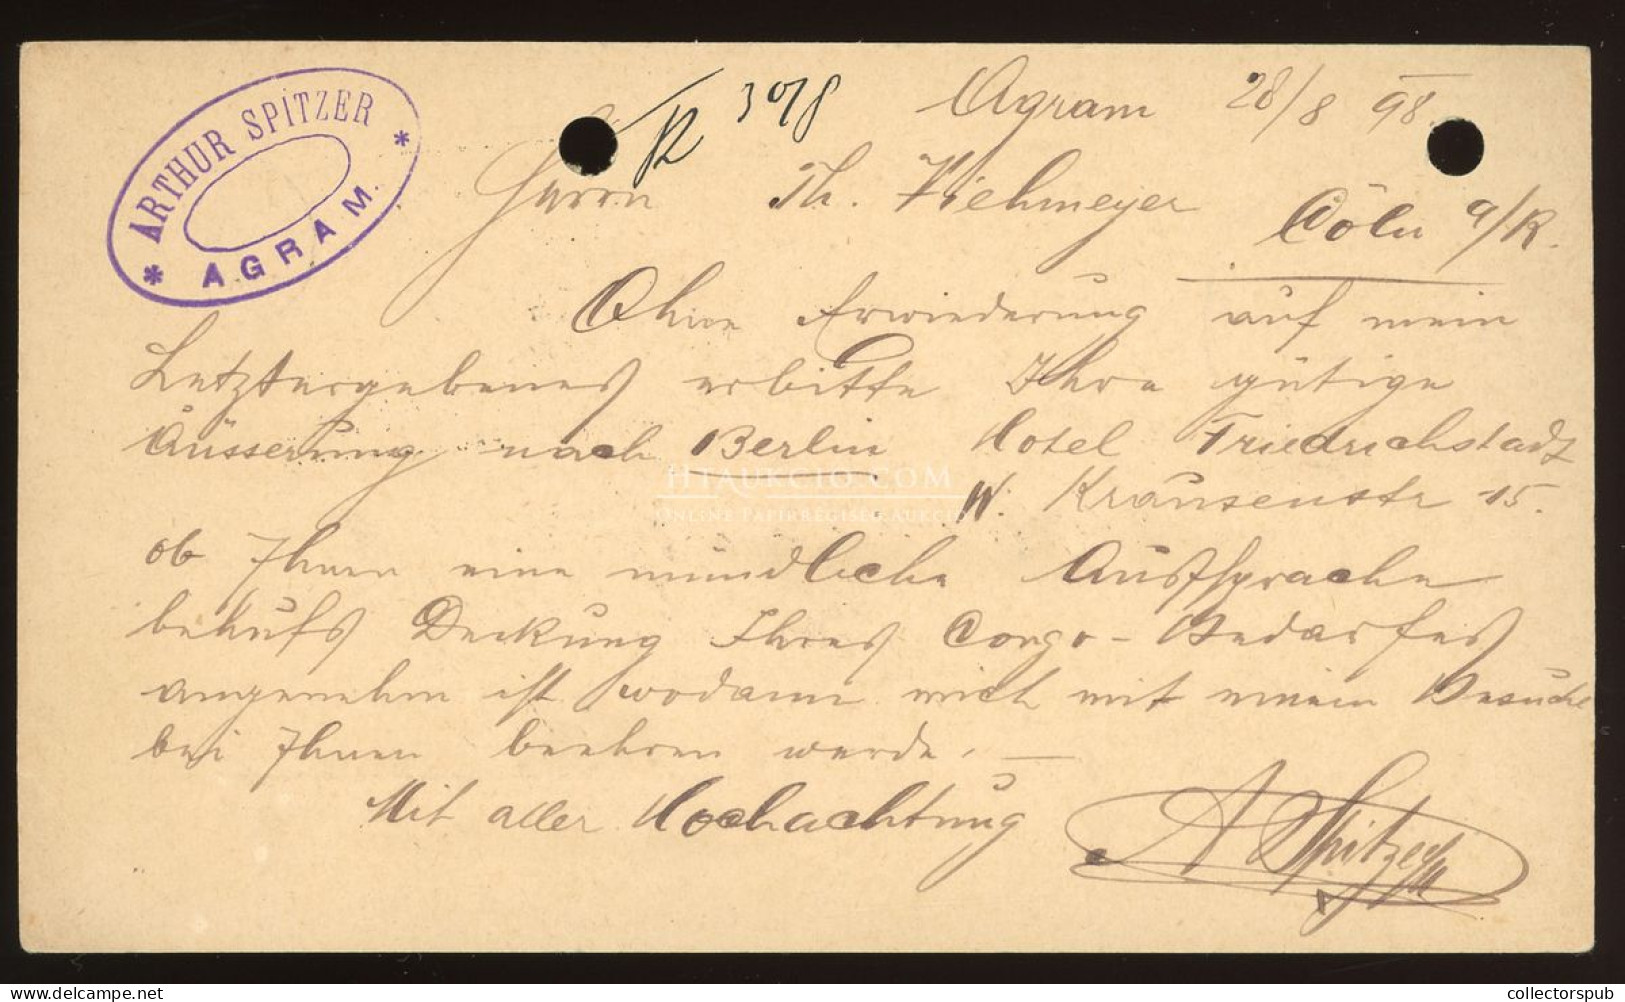 ARTHUR SPITZER
* AGRAM. *
R 3018
Agram 28/8 98.
Herrn Th. Wiehmeyer
Cöln a/R.
Ohne Erwiederung auf mein
Letztergebenes erbitte Ihre gütige
Äusserung nach Berlin Hotel Friedrichstadt
W. Krausenstr 15.
ob Ihnen eine mündliche Aussprache
behufs Deckung Ihres Congo-Bedarfes
angenehm ist wodann mich mit einem Besuche
bei Ihnen beehren werde. —
Mit aller Hochachtung
A Spitzer
HTAUKCIO.COM
ONLINE PAPÍRRÉGISÉG AUKCIÓ
delcampe.net
collectorspub